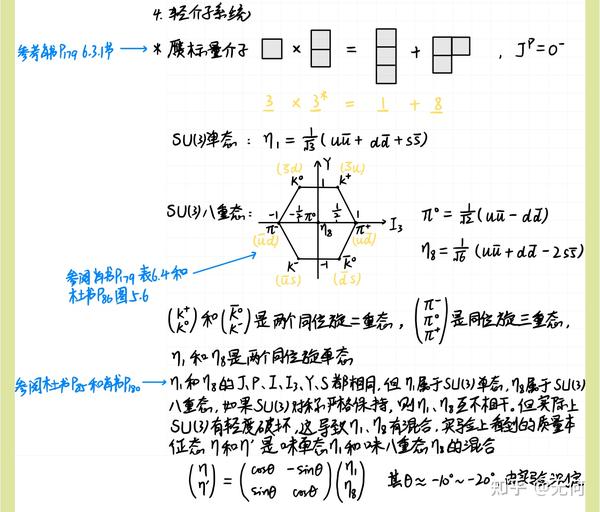 4. 轻介子系统
参考肖书P179 6.3.1节 → * 赝标量介子 □ × = + , J^P=0^-
3 × 3* = 1 + 8
SU(3)单态: η₁ = 1/√3 (uū + dd̄ + ss̄)
Y
(s̄d) (s̄u)
K⁰ 1 K⁺
SU(3)八重态: -1 -1/2 π⁰ 1/2 1 I₃ π⁰ = 1/√2 (uū - dd̄)
π⁻ η₈ π⁺
(ūd) (ud̄) η₈ = 1/√6 (uū + dd̄ - 2ss̄)
K⁻ -1 K̄⁰
(ūs) (d̄s)
参阅肖书P179 表6.4和
杜书P86 图5.6
(K⁺ K⁰) 和 (K̄⁰ K⁻) 是两个同位旋二重态, (π⁻ π⁰ π⁺) 是同位旋三重态,
η₁ 和 η₈是两个同位旋单态
参阅杜书P85和肖书P180 → η₁ 和 η₈ 的 J、P、I、I₃、Y、S 都相同, 但 η₁属于SU(3)单态, η₈属于SU(3)
八重态, 如果SU(3)对称严格保持, 则η₁、η₈互不相干。但实际上
SU(3)有轻度破坏, 这导致η₁、η₈有混合, 实验上看到的质量本
征态 η和η′ 是味单态η₁和味八重态η₈的混合
(η η′) = (cosθ -sinθ sinθ cosθ) (η₁ η₈) 其θ≈ -10°~-20° 由实验测定
知乎 @无问